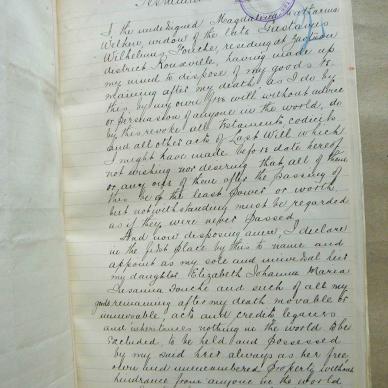 Testament
I the undersigned Magdalena Catharina
widow of the late Gustavus
Wilhelmus Fouche, residing at
district Rouxville, having made up
my mind to dispose of my goods re
maining after my death, as I do by
this, by my own free will without advice
or persuasion of anyone in the world, do
by this revoke all Testaments, codicils
and all other acts of Last Will which
I might have made before date hereof
not wishing nor desiring that all of them
or any one of them after the passing of
this be of the least power or worth
but notwithstanding must be regarded
as if they were never passed
And now disposing anew, I declare
in the first place by this to name and
appoint as my sole and universal heir
my daughter Elizabeth Johanna Maria
Susanna Fouché and such of all my
goods remaining after my death movable or
immovable acts and credits legacies
and inheritances nothing in the world to be
excluded, to be held and possessed
by my said heir always as her free
own and unencumbered property without
hindrance from anyone in the world